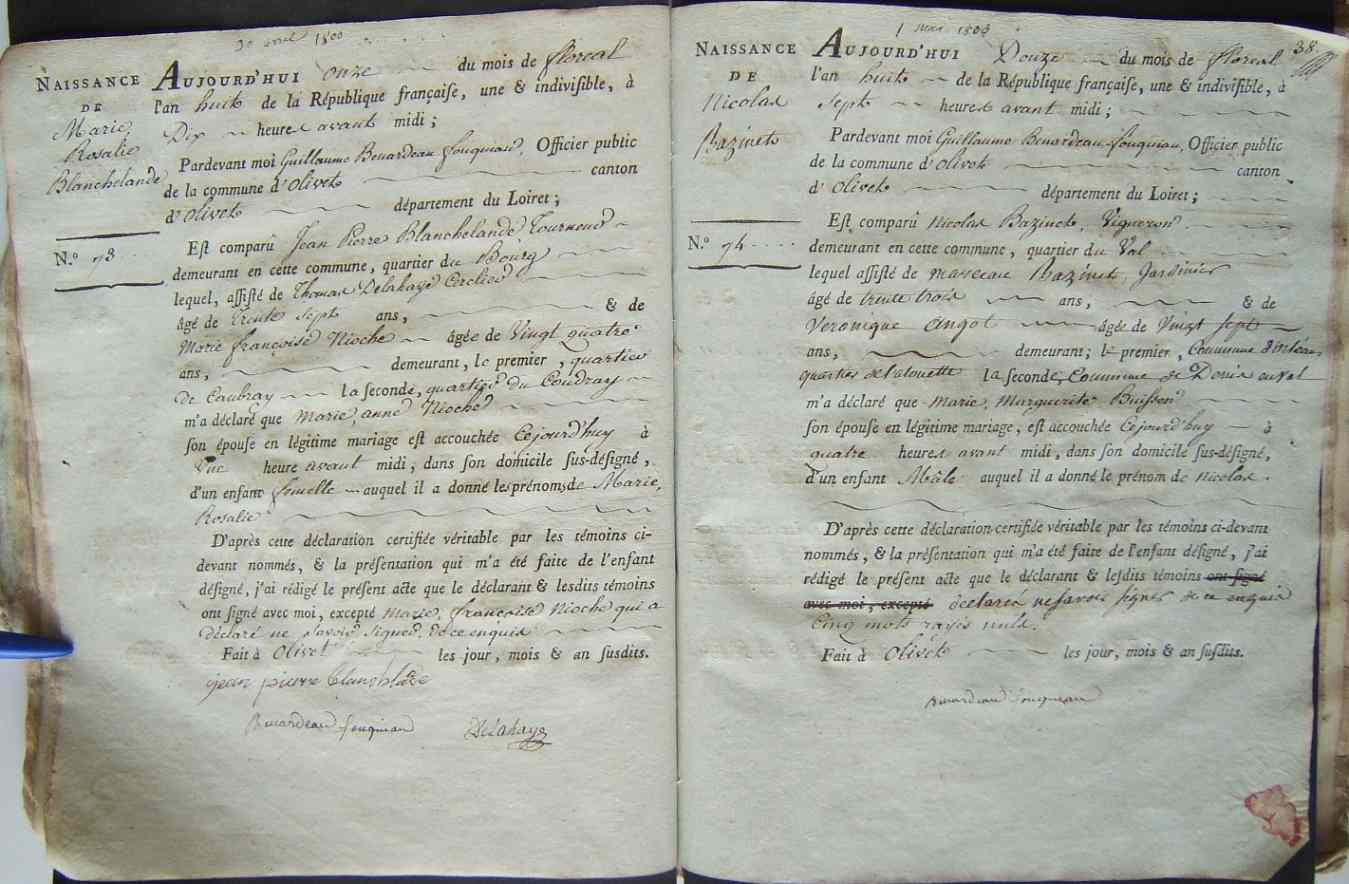 30 avril 1800
NAISSANCE
DE
Marie
Rosalie
Blanchelande
N.º 73
AUJOURD'HUI onze du mois de floreal
l'an huit de la République française, une & indivisible, à
Dix heures avant midi ;
Pardevant moi Guillaume Benardeau fouquiau, Officier public
de la commune d'olivet canton
d'olivet département du Loiret ;
Est comparû Jean Pierre Blanchelande Tourneur
demeurant en cette commune, quartier du Bourg
lequel, assisté de Thomas Delahaye Cerclier
âgé de Trente Sept ans, & de
Marie françoise Nioche âgée de Vingt quatre
ans, demeurant, le premier, quartier
de Caubray la seconde, quartier du Coudray
m'a déclaré que Marie, anne Nioche
son épouse en légitime mariage est accouchée Cejourd'huy à
Une heure avant midi, dans son domicile sus-désigné,
d'un enfant femelle auquel il a donné les prénoms de Marie,
Rosalie
D'après cette déclaration certifiée véritable par les témoins ci-
devant nommés, & la présentation qui m'a été faite de l'enfant
désigné, j'ai rédigé le présent acte que le déclarant & lesdits témoins
ont signé avec moi, excepté Marie, françoise Nioche qui a
déclaré ne savoir signer. De ce enquis
Fait à Olivet les jour, mois & an susdits.
jean pierre blanchlade
Benardeau fouquiau Delahaye
1 mai 1800
38.
NAISSANCE
DE
Nicolas
Bazinet
N.º 74
AUJOURD'HUI Douze du mois de floreal
l'an huit de la République française, une & indivisible, à
Sept heures avant midi ;
Pardevant moi Guillaume Benardeau-fouquiau, Officier public
de la commune d'olivet canton
d'olivet département du Loiret ;
Est comparû Nicolas Bazinet, Vigneron
demeurant en cette commune, quartier du Val
lequel assisté de Bazinet, Jardinier
âgé de trente trois ans, & de
Veronique angot âgée de Vingt sept
ans, demeurant ; le premier, Commune d'orléans
quartier de l'alouette la seconde, Commune de Denis en val
m'a déclaré que Marie, Marguerite Buisson
son épouse en légitime mariage, est accouchée Cejourd'huy à
quatre heures avant midi, dans son domicile sus-désigné,
d'un enfant Mâle auquel il a donné le prénom de Nicolas.
D'après cette déclaration certifiée véritable par les témoins ci-devant
nommés, & la présentation qui m'a été faite de l'enfant désigné, j'ai
rédigé le présent acte que le déclarant & lesdits témoins ont signé
avec moi, excepté declarés ne savoir signer de ce enquis
Cinq mots rayés nuls.
Fait à Olivet les jour, mois & an susdits.
Benardeau fouquiau